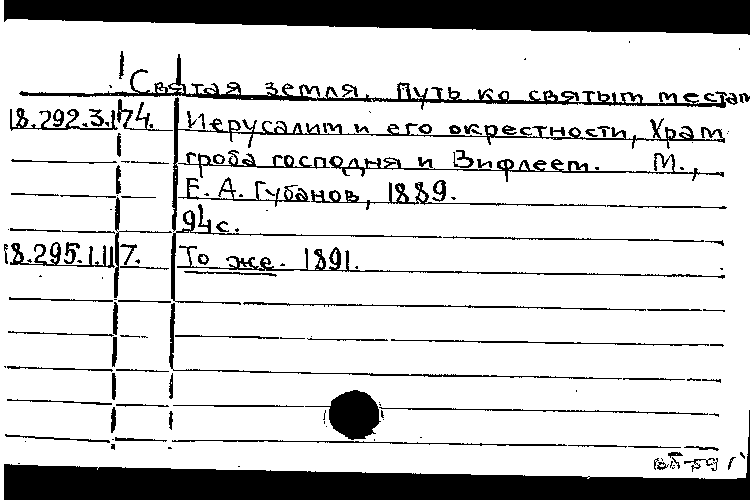 Святая земля. Путь ко святым местам
18.292.3.174. Иерусалим и его окрестности, Храм
гроба господня и Вифлеем. М.,
Е. А. Губанов, 1889.
94 с.
18.295.1.117. То же. 1891.